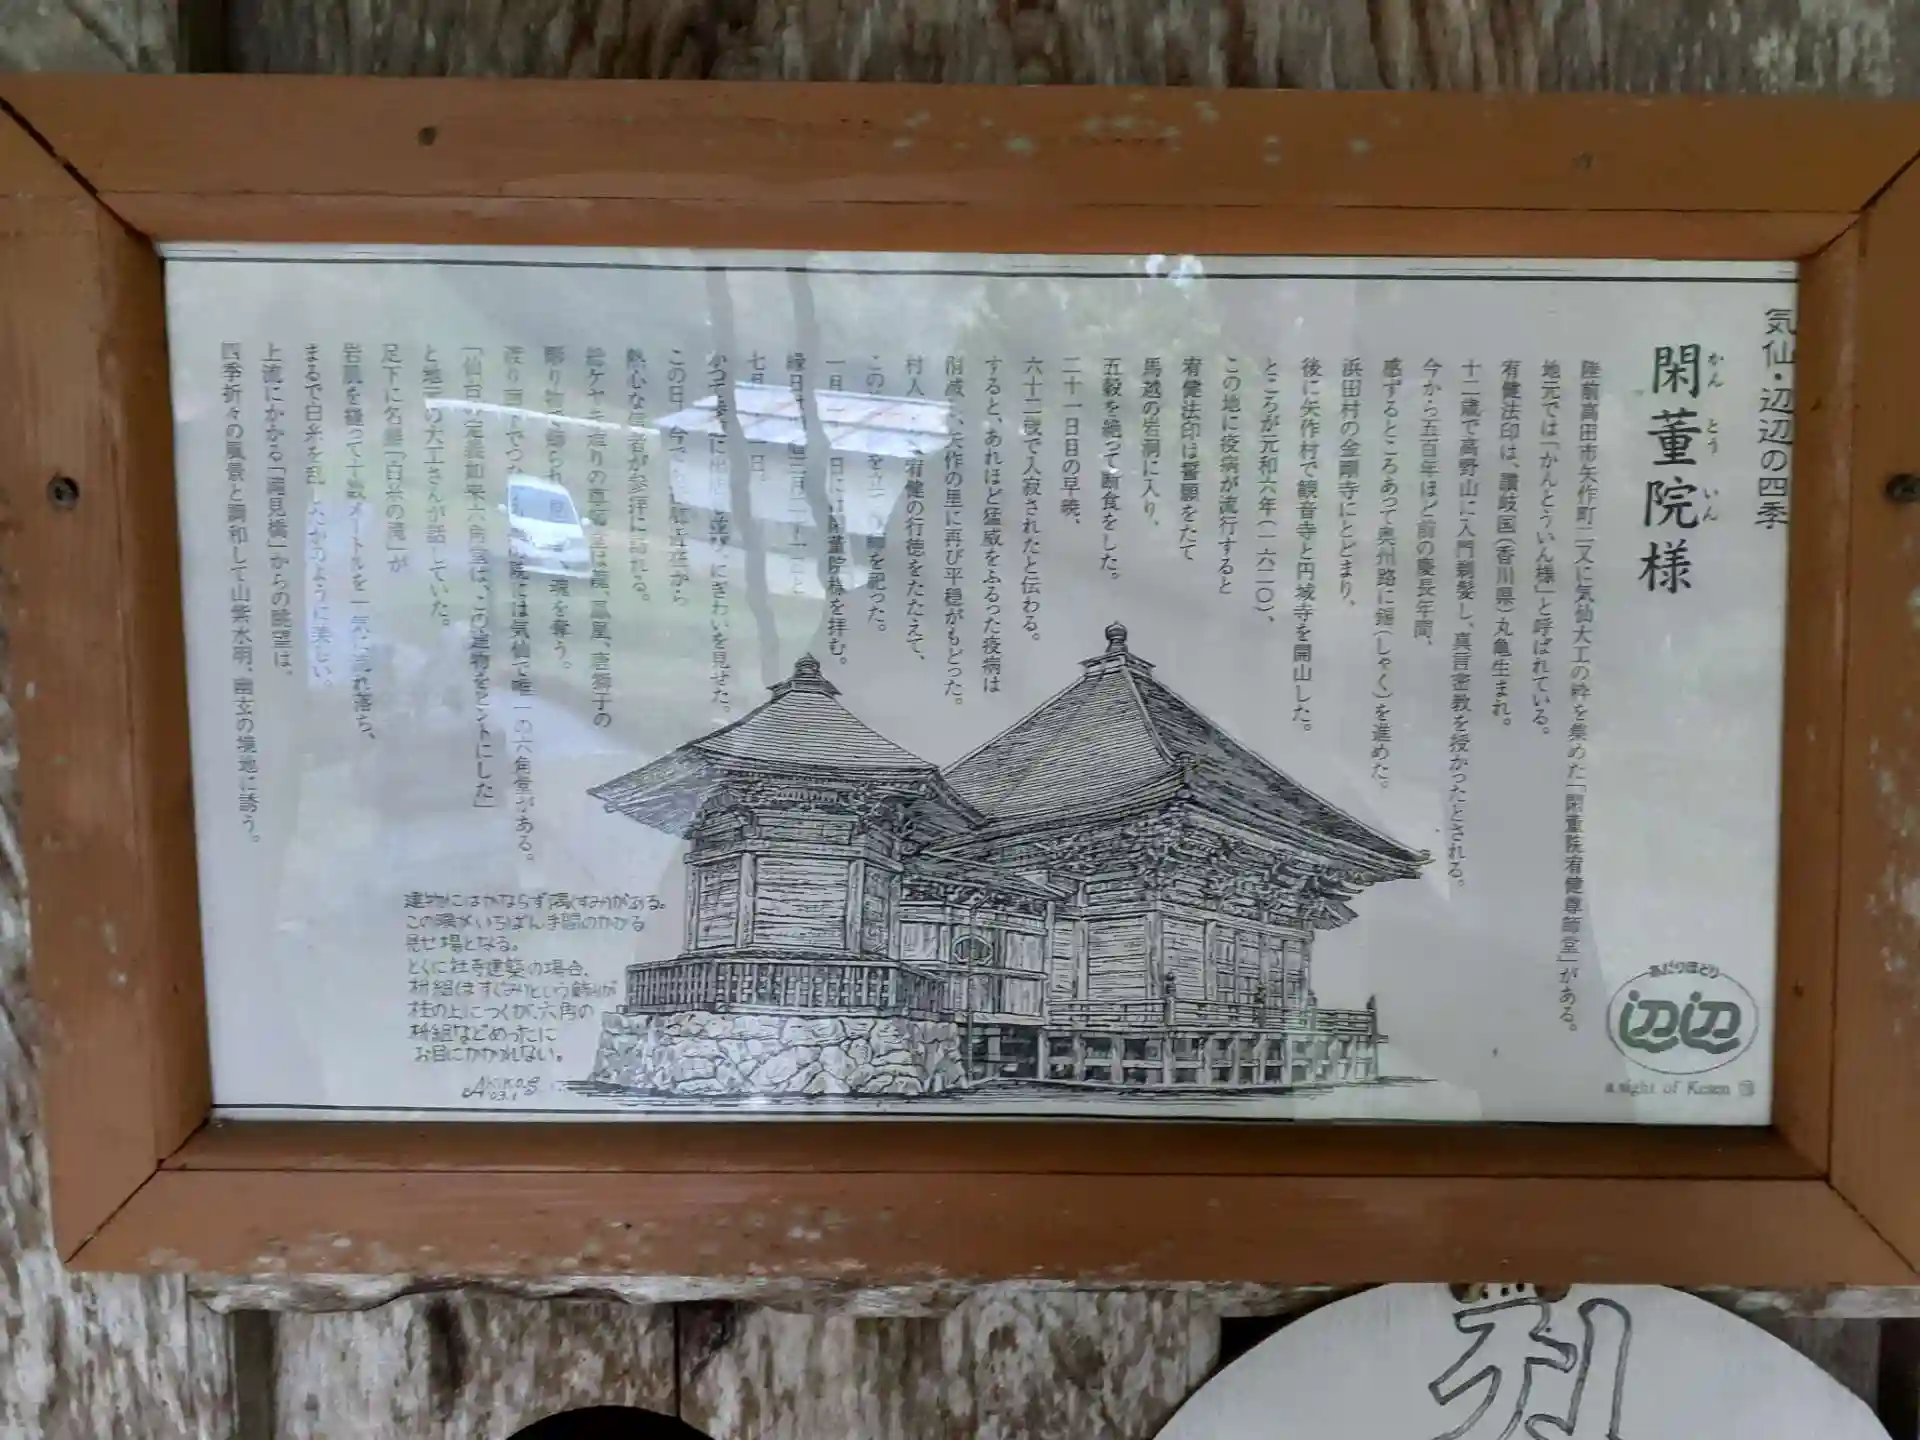 気仙・辺辺の四季
閑董院様
かんとういん
陸前高田市矢作町二又に気仙大工の粋を集めた「閑董院宥健尊師堂」がある。
地元では「かんとういん様」と呼ばれている。
宥健法印は、讃岐国(香川県)丸亀生まれ。
十二歳で高野山に入門剃髪し、真言密教を授かったとされる。
今から五百年ほど前の慶長年間、
感ずるところあって奥州路に錫(しゃく)を進めた。
浜田村の金剛寺にとどまり、
後に矢作村で観音寺と円城寺を開山した。
ところが元和六年(一六二〇)、
この地に疫病が流行すると
宥健法印は誓願をたて
馬越の岩洞に入り、
五穀を絶って断食をした。
二十一日目の早暁、
六十二歳で入寂されたと伝わる。
すると、あれほど猛威をふるった疫病は
消滅し、矢作の里に再び平穏がもどった。
村人 宥健の行徳をたたえて、
この を立 師を祀った。
一月 日には閑董院様を拝む。
縁日は と
七月 日。
かつて にぎわいを見せた。
この日、今でも から
熱心な信者が参拝に訪れる。
総ケヤキ造りの尊師堂は龍、鳳凰、唐獅子の
彫り物で飾られ 魂を奪う。
渡り廊下でつな 院には気仙で唯一の六角堂がある。
「仙台 定義如来六角堂は、この建物をヒントにした」
と地元の大工さんが話していた。
足下に名勝「白糸の滝」が
岩肌を縫って十数メートルを一気に流れ落ち、
まるで白糸を乱したかのように美しい。
上流にかかる「滝見橋」からの眺望は、
四季折々の風景と調和して山紫水明、幽玄の境地に誘う。
建物にはかならず隅(すみ)がある。
この隅がいちばん手間のかかる
見せ場となる。
とくに社寺建築の場合、
枡組(ますぐみ)という飾りが
柱の上につくが、六角の
枡組などめったに
お目にかかれない。
あたりほとり
辺辺
a sight of Kesen